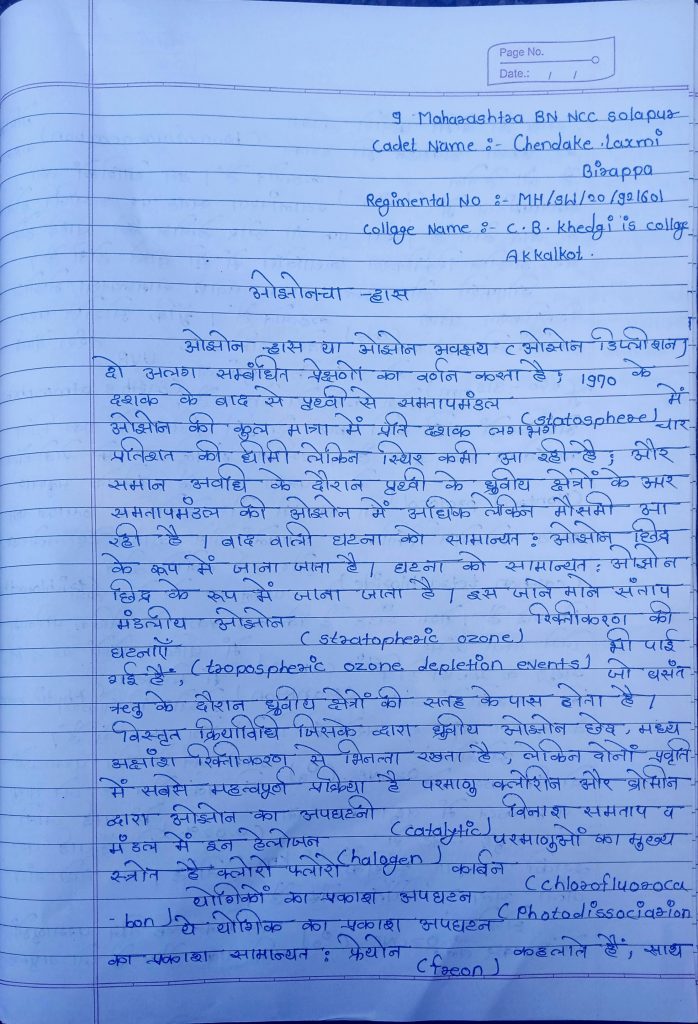 Page No.
Date.: / /
9 Maharashtra BN NCC Solapur
Cadet Name :- Chendake .Laxmi
Birappa
Regimental No :- MH/SW/20/921601
Collage Name :- C. B. Khedgi is collge
Akkalkot.
ओझोनचा ऱ्हास
ओझोन ऱ्हास या ओझोन अवक्षय (ओझोन डिप्लीशन)
दो अलग सम्बंधित प्रेक्षणों का वर्णन करता है; 1970 के
दशक के बाद से पृथ्वी से समतापमंडल में
ओझोन की कुल मात्रा में प्रति दशक लगभग (statosphere) चार
प्रतिशत की धीमी लेकिन स्थिर कमी आ रही है; और
समान अवधि के दौरान पृथ्वी के ध्रुवीय क्षेत्रों के ऊपर
समतापमंडल की ओझोन में अधिक लेकिन मौसमी आ
रही है । बाद वाली घटना को सामान्यत: ओझोन छिद्र
के रूप में जाना जाता है। घटना को सामान्यत: ओझोन
छिद्र के रूप में जाना जाता है। इस जाने माने संताप
मंडलीय ओझोन रिक्तीकरण की
घटनाएँ (stratopheric ozone) भी पाई
गई हैं, (tropospheric ozone depletion events) जो वसंत
ऋतु के दौरान ध्रुवीय क्षेत्रों की सतह के पास होता है।
विस्तृत क्रियाविधि जिसके द्वारा ध्रुवीय ओझोन छेद, मध्य
अक्षांश रिक्तीकरण से भिनल्ता रखता है, लेकिन दोनों प्रवृति
में सबसे महत्वपूर्ण प्रक्रिया है परमाणु क्लोरिन और ब्रोमीन
द्वारा ओझोन का अपघटनी विनाश समताप व
मंडल में इन हेलोजन (catalytic) परमाणुओं का मुख्य
स्त्रोत है क्लोरो फ्लोरो (halogen) कार्बन
योगिकों का प्रकाश अपघटन (chlorofluoroca
-bon) ये योगिक का प्रकाश अपघटन (Photodissociarion
का प्रकाश सामान्यत: फ्रेयोन कहलाते हैं, साथ
(freon)